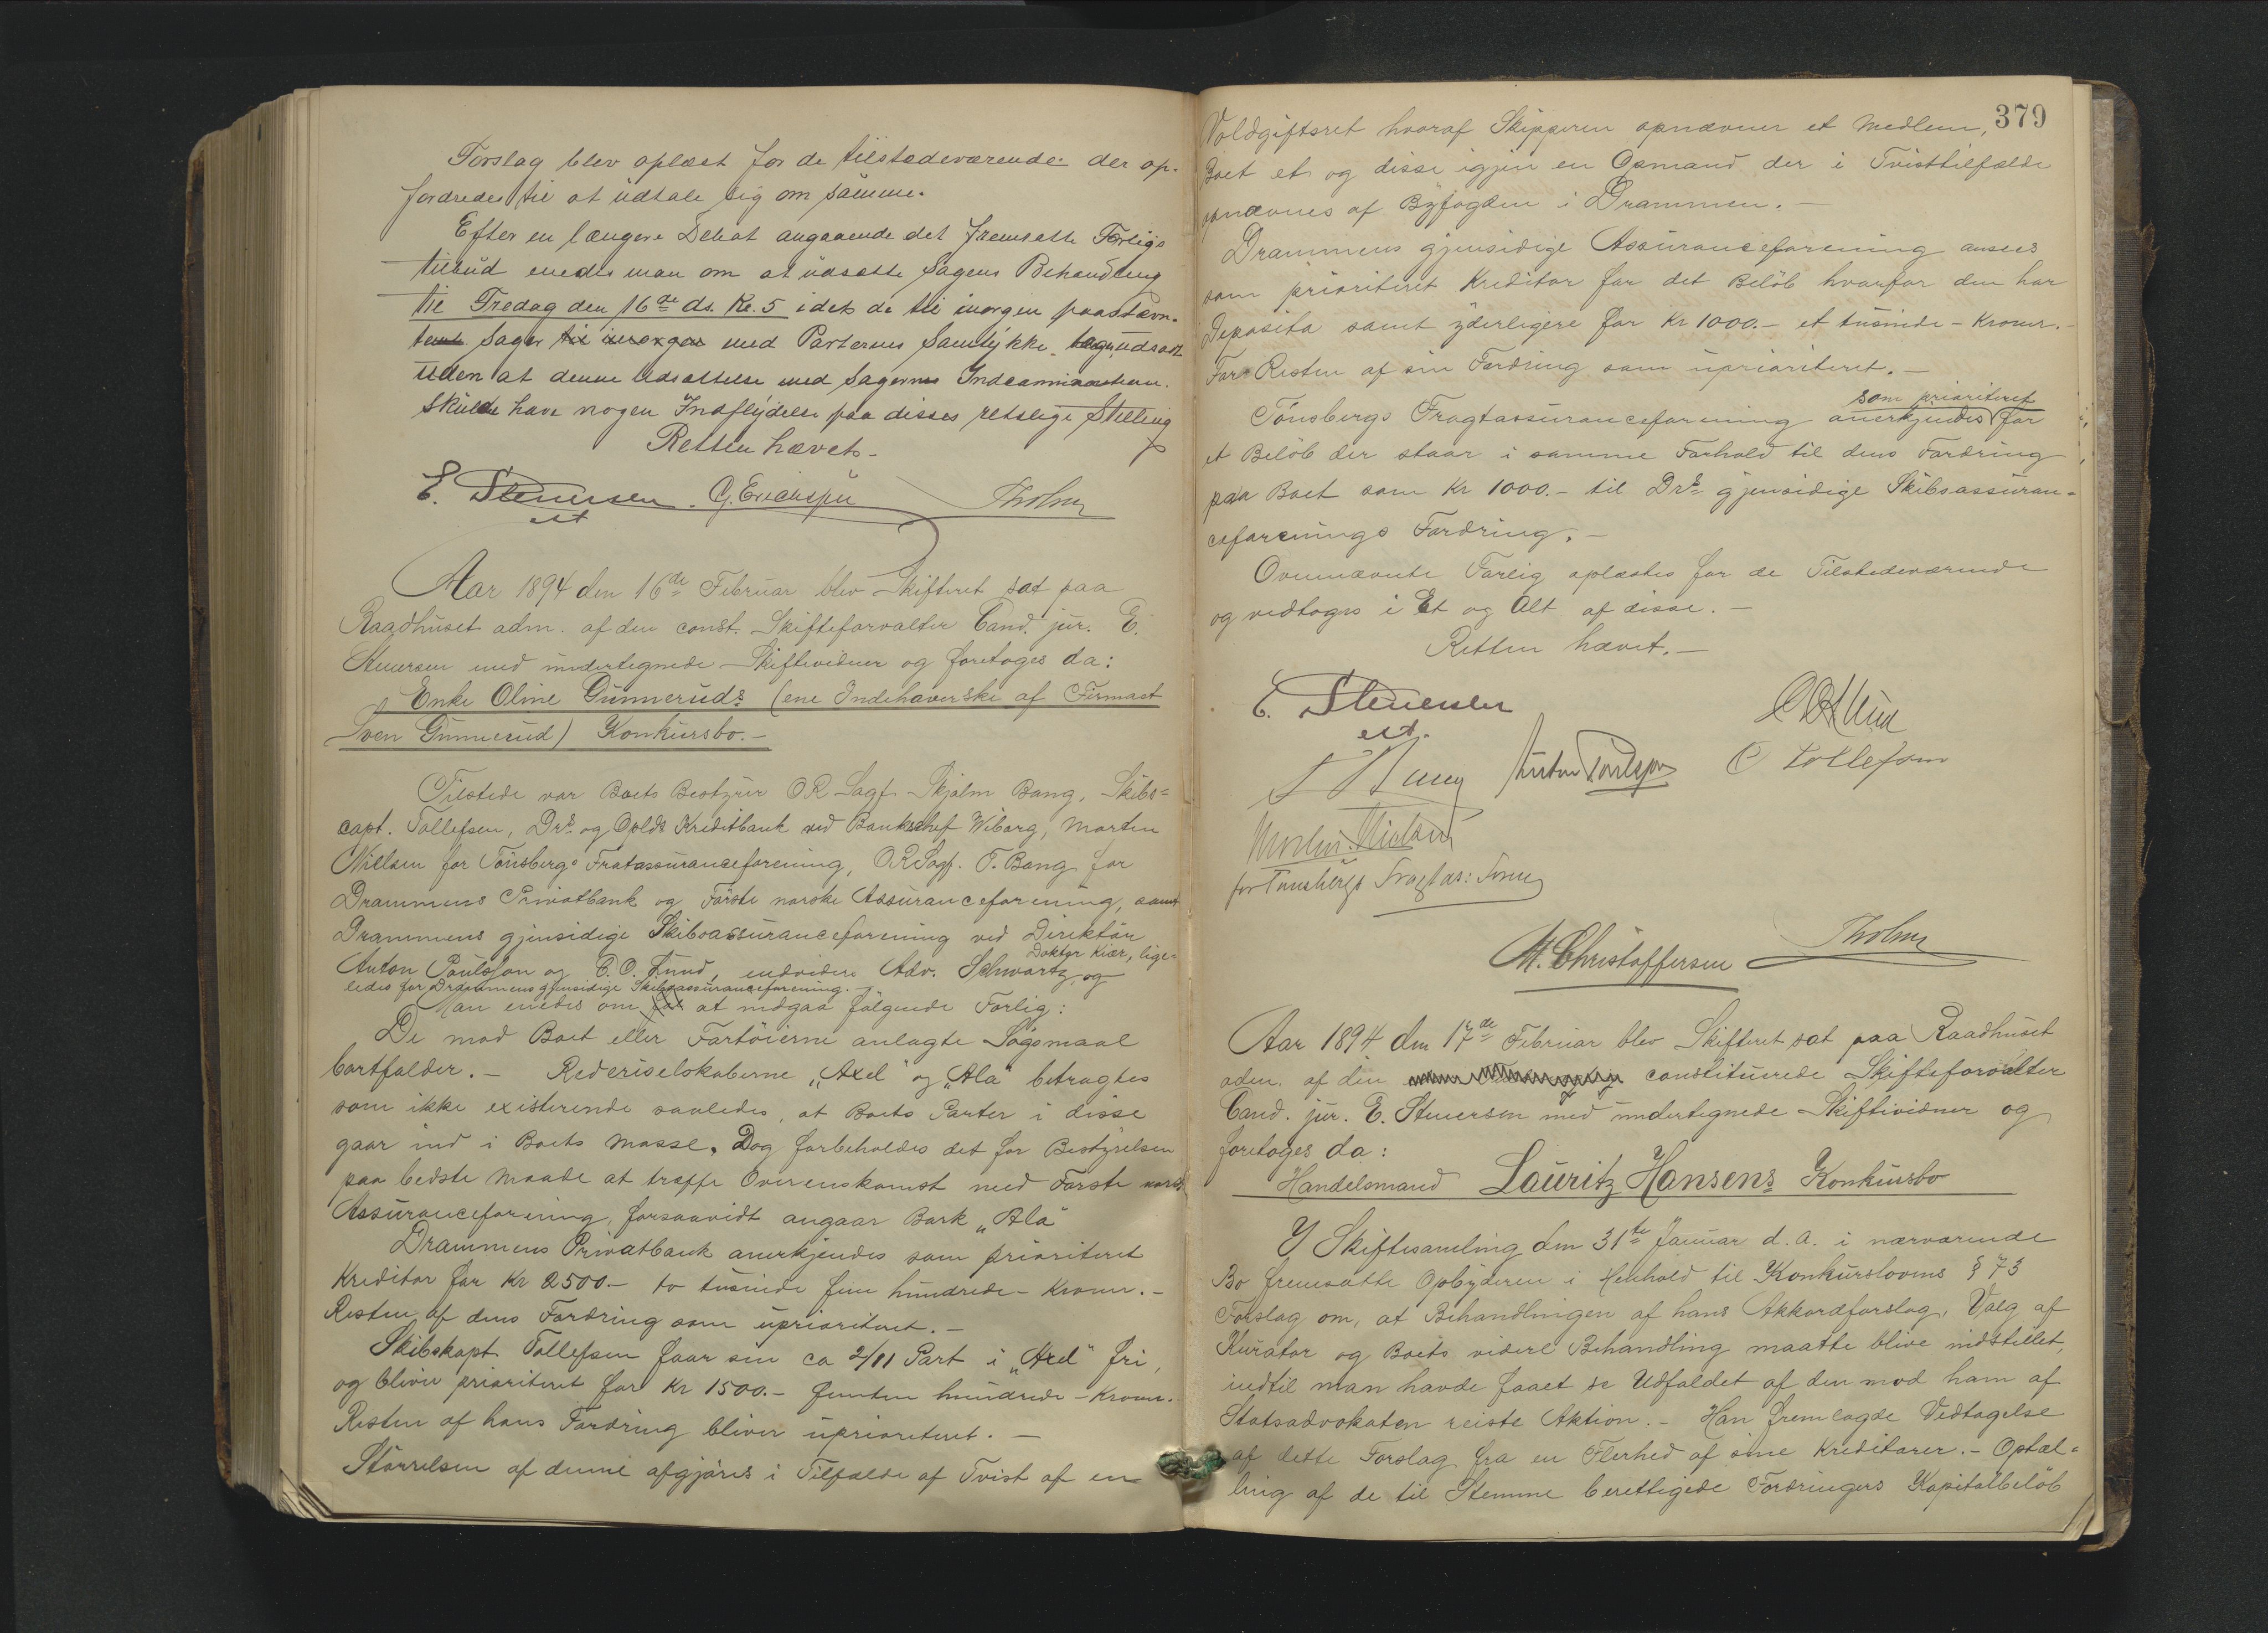 Forslag blev oplæst for de tilstedeværende der op-
fordredes til at udtale sig om samme.
Efter en længere Debat angaaende det fremsatte Forligs
tilbud enedes man om at udsætte Sagens Behandling
til Fredag den 16de ds. Kl. 5 idet de til imorgen paastævn-
te Sager til imorgen med Parternes Samtykke udsat
uden at denne Udsættelse med Sagernes
skulde have nogen Indflydelse paa disses retslige Stilling
Retten hævet.
E. Stenersen G. Erichsen Tholm
cst
Aar 1894 den 16de Februar blev Skifteret sat paa
Raadhuset adm. af den const. Skifteforvalter Cand. jur. E.
Stenersen med undertegnede Skiftevidner og foretoges da:
Enke Oline Gunneruds (ene Indehaverske af Firmaet
Sven Gunnerud) Konkursbo.-
Tilstede var Boets Bestyrer OR Sagf. Skjalm Bang, Skibs=
capt. Tollefsen, Drs og Oplds Kreditbank ved Bankchef Wiborg, Morten
Nielsen for Tönsbergs Fratassuranceforening, ORSagf. T. Bang for
Drammens Privatbank og Förste norske Assuranceforening, samt
Drammens gjensidige Skibsassuranceforening ved Direktör
Anton Poulsson og C. O. Lund, endvidere Adv. Schwartz og
Doktor Kiær, lige=
ledes for Drammens gjensidige Skibsassuranceforening.
Man enedes om at indgaa fölgende Forlig:
De mod Boet eller Fartöierne anlagte Sögsmaal
bortfalder. - Rederiselskaberne "Axel" og "Ala" betragtes
som ikke existerende saaledes, at Boets Parter i disse
gaar ind i Boets Masse. Dog forbeholdes det for Bestyrelsen
paa bedste Maade at træffe Overenskomst med Förste norske
Assuranceforening, forsaavidt angaar Bark "Ala"
Drammens Privatbank anerkjendes som prioriteret
Kreditor for Kr 2500.- to tusinde fem hundrede - Kroner.-
Resten af dens Fordring som uprioriteret.-
Skibskapt. Tollefsen faar sin ca 2/11 Part i "Axel" fri,
og bliver prioriteret for Kr 1500.- femten hundrede - Kroner.
Resten af hans Fordring bliver uprioriteret. -
Störrelsen af denne afgjöres i Tilfælde af Tvist af en
379
Voldgiftsret hvoraf Skipperen opnævner et Medlem,
Boet et og disse igjen en Opmand der i Tvisttilfælde
opnævnes af Byfogden i Drammen. -
Drammens gjensidige Assuranceforening ansees
som prioriteret Kreditor for det Belöb hvorfor den har
Deposita samt yderligere for Kr 1000.- et tusinde - Kroner.-
For Resten af sin Fordring som uprioriteret. -
som prioriteret
Tönsbergs Fragtassuranceforening anerkjendes for
et Belöb der staar i samme Forhold til dens Fordring
paa Boet som Kr 1000.- til Drs gjensidige Skibsassuran=
ceforenings Fordring. -
Ovennævnte Forlig oplæstes for de Tilstedeværende
og vedtoges i Et og Alt af disse. -
Retten hævet. -
E. Stenersen
cst.
Anton Poulsson C Tollefsen
Morten Nielsen
for Tønsbergs Fragtas: Foren
M. Christoffersen Tholm
Aar 1894 den 17de Februar blev Skifteret sat paa Raadhuset
adm. af den constituerede Skifteforvalter
Cand. jur. E. Stenersen med undertegnede Skiftevidner og
foretoges da:
Handelsmand Lauritz Hansens Konkursbo
I Skiftesamling den 31te Januar d. a. i nærværende
Bo fremsatte Opbyderen i Henhold til Konkurslovens § 73
Forslag om, at Behandlingen af hans Akkordforslag, Valg af
Kurator og Boets videre Behandling maatte blive indstillet,
indtil man havde faaet se Udfaldet af den mod ham af
Statsadvokaten reiste Aktion. - Han fremlagde Vedtagelse
af dette Forslag fra en Flerhed af sine Kreditorer. - Optæl=
ling af de til Stemme berettigede Fordringers Kapitalbelöb